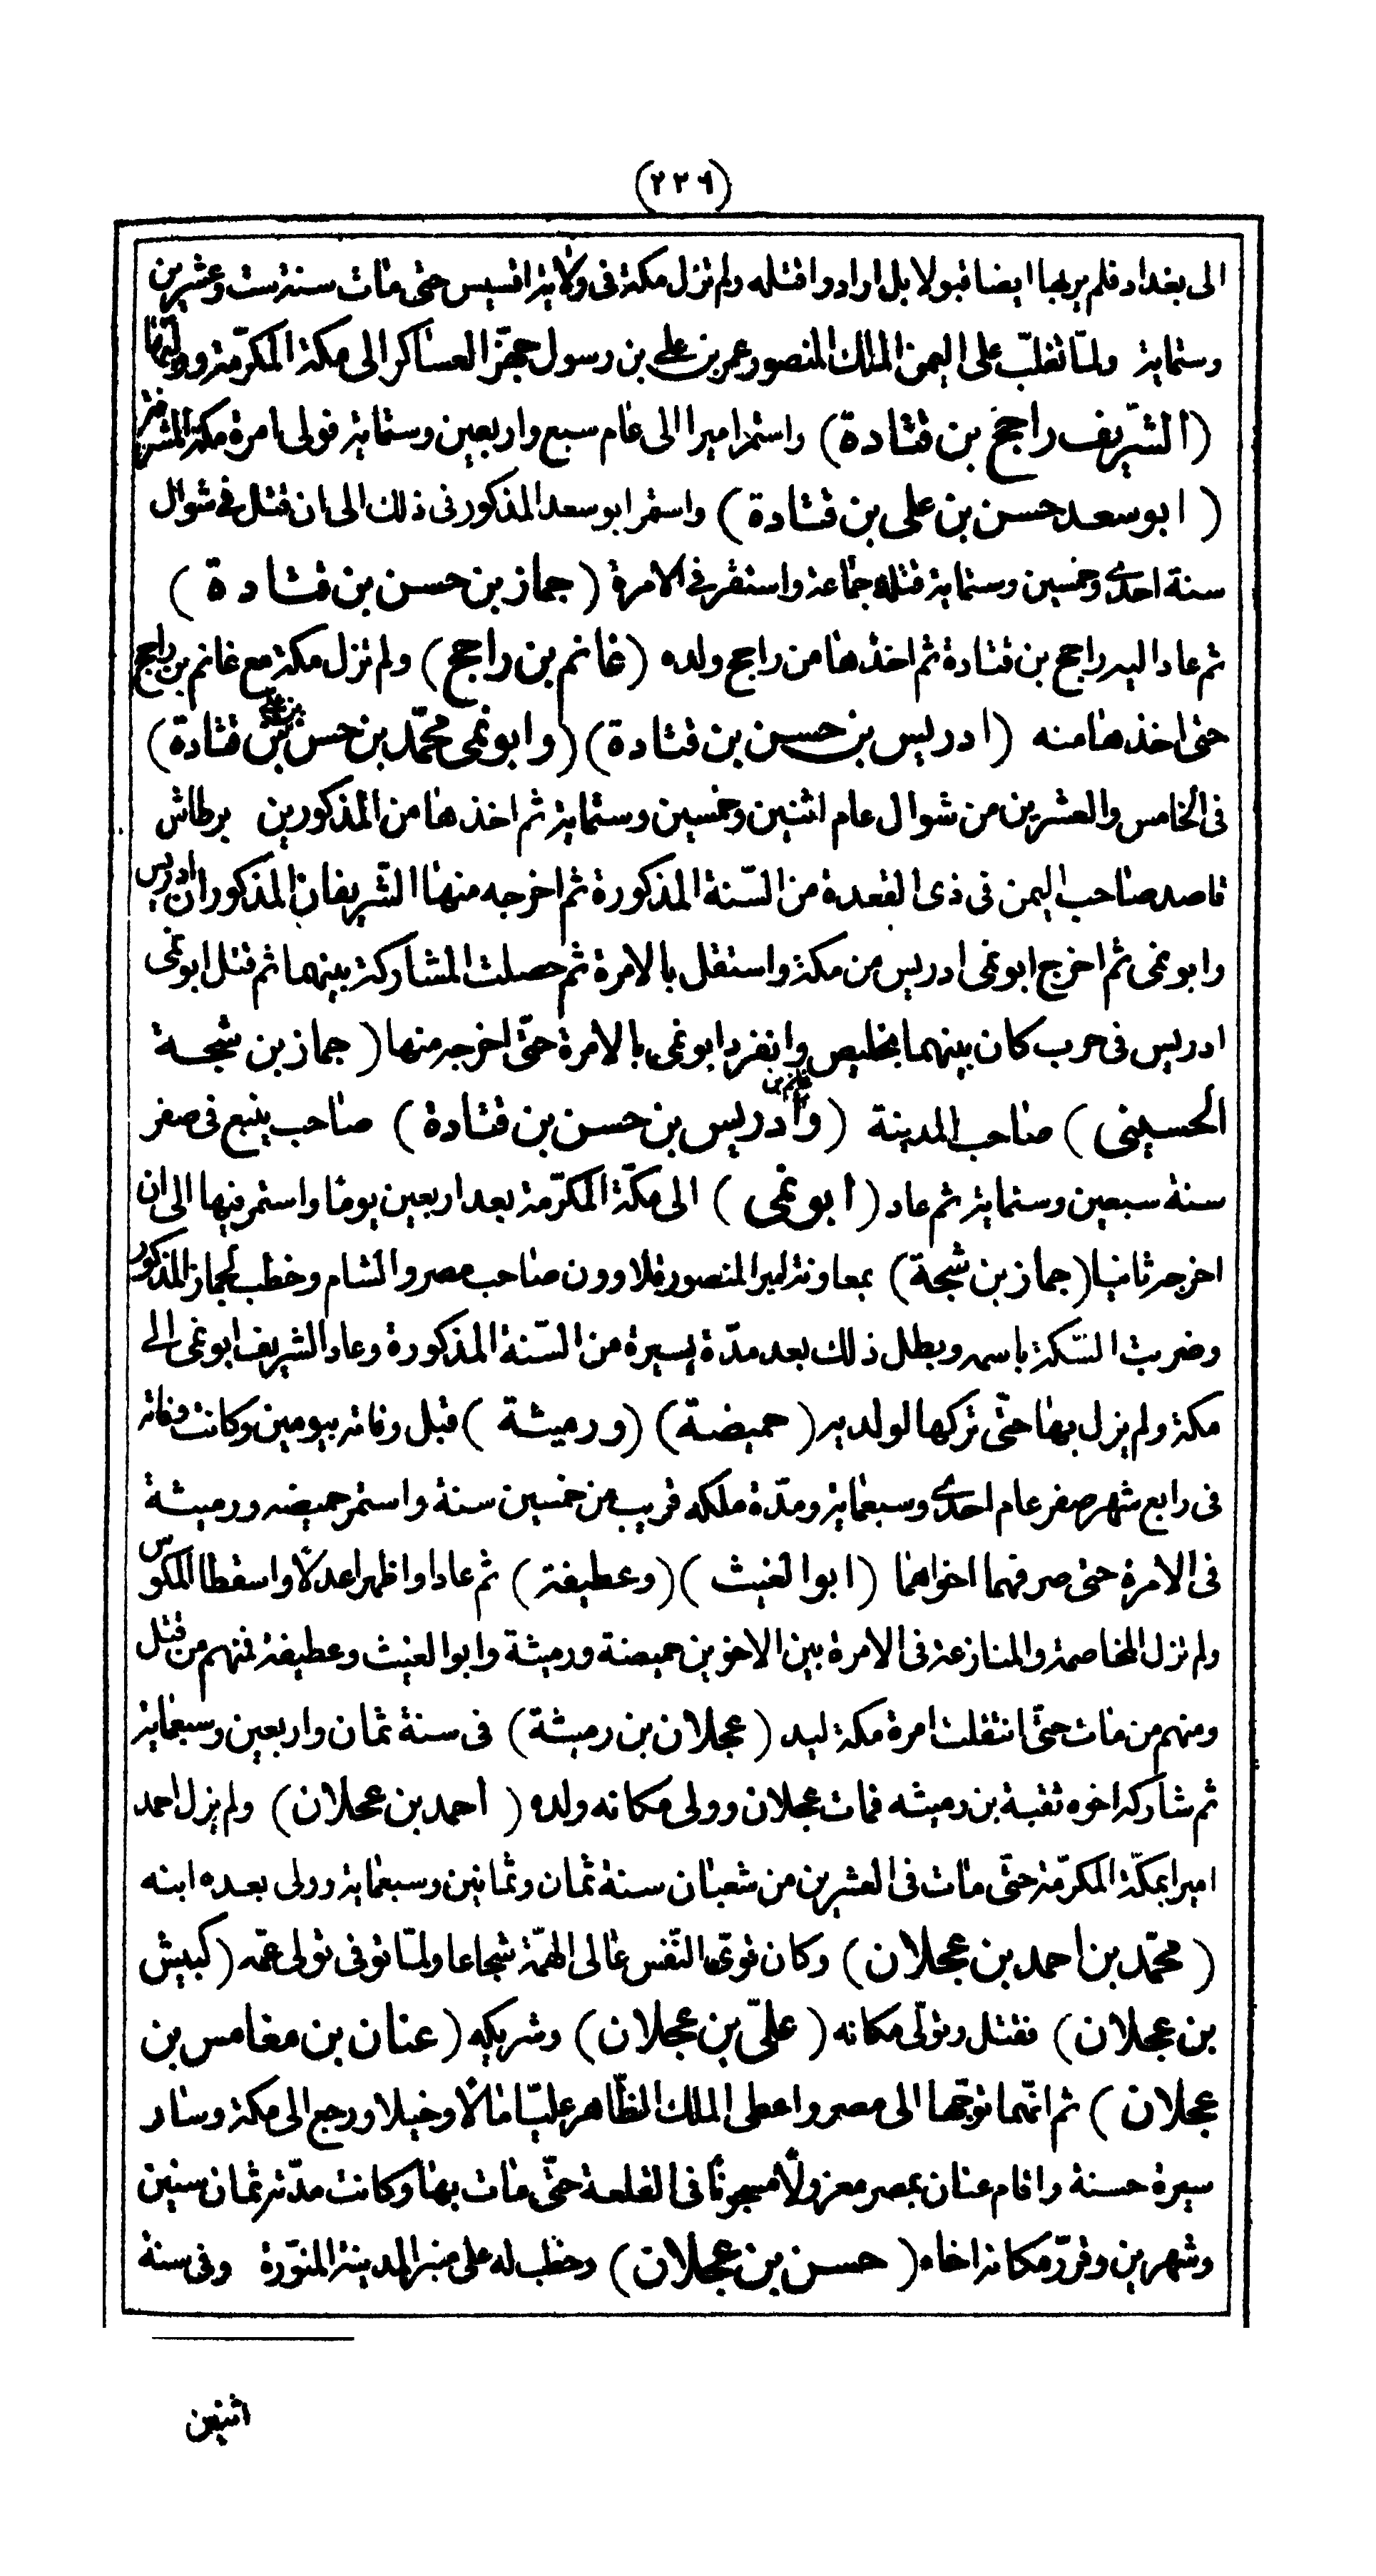 (٢٣٦)
الى بغداد فلم ير بها ايضا قبولا بل ارادوا قتله ولم تزل مكة فى ولاية اقسيس حتى مات سنة ست وعشرين
وستماية ولمّا تغلّب على اليمن الملك المنصور عمر بن على بن رسول جهّز العساكر الى مكة المكرّمة وولّيها
(الشّريف راجح بن قتادة) واستمر اميرا الى عام سبع واربعين وستماية فولى امرة مكة المشرفة
(ابو سعد حسن بن على بن قتادة) واستمر ابو سعد المذكور فى ذلك الى ان قتل فى شوال
سنة احدى وخمسين وستماية قتله جماعة واستقر فى الامرة (جماز بن حسن بن قتادة)
ثم عاد اليه راجح بن قتادة ثم اخذها من راجح ولده (غانم بن راجح) ولم تزل مكة مع غانم بن راجح
حتى اخذها منه (ادريس بن حسن بن قتادة) (وابو نمى محمّد بن حسن بن على بن قتادة)
فى الخامس والعشرين من شوال عام اثنين وخمسين وستماية ثم اخذها من المذكورين برطاش
قاصد صاحب اليمن فى ذى القعدة من السّنة المذكورة ثم اخرجه منها الشّريفان المذكوران ادريس
وابو نمى ثم اخرج ابو نمى ادريس من مكة واستقل بالامرة ثم حصلت المشاركة بينهما ثم قتل ابو نمى
ادريس فى حرب كان بينهما بخليص وانفرد ابو نمى بالامرة حتّى اخرجه منها (جماز بن شيحة
الحسينى) صاحب المدينة (وغانم بن ادريس بن حسن بن قتادة) صاحب ينبع فى صفر
سنة سبعين وستماية ثم عاد (ابو نمى) الى مكّة المكرّمة بعد اربعين يوما واستمر فيها الى ان
اخرجه ثانيا (جماز بن شيحة) بمعاونة امير المنصور قلاوون صاحب مصر والشام وخطب لجماز المذكور
وضربت السّكة باسمه وبطل ذلك بعد مدّة يسيرة من السّنة المذكورة وعاد الشريف ابو نمى الى
مكة ولم يزل بها حتّى تركها لولديه (حميضة) (ورميثة) قبل وفاته بيومين وكانت وفاته
فى رابع شهر صفر عام احدى وسبعماية ومدّة ملكه قريب من خمسين سنة واستمر حميضه ورميثة
فى الامرة حتى صرفهما اخواهما (ابو الغيث) (وعطيفة) ثم عادا واظهرا عدلا واسقطا المكوس
ولم تزل المخاصمة والمنازعة فى الامرة بين الاخوين حميضة ورميثة وابو الغيث وعطيفة فمنهم من قتل
ومنهم من مات حتّى انتقلت امرة مكة ليد (عجلان بن رميثة) فى سنة ثمان واربعين وسبعماية
ثم شاركه اخوه ثقبة بن رميثه فمات عجلان وولى مكانه ولده (احمد بن عجلان) ولم يزل احمد
اميرا بمكّة المكرّمة حتّى مات فى العشرين من شعبان سنة ثمان وثمانين وسبعماية وولى بعده ابنه
(محمّد بن احمد بن عجلان) وكان قوىّ النّفس عالى الهمّة شجاعا ولمّا توفى تولى عمّه (كبيش
بن عجلان) فقتل وتولّى مكانه (علىّ بن عجلان) وشريكه (عنان بن مغامس بن
عجلان) ثم انّهما توجّها الى مصر واعطى الملك الظّاهر عليّا مالا وخيلا ورجع الى مكة وسار
سيرة حسنة واقام عنان بمصر معزولا مسجونا فى القلعة حتّى مات بها وكانت مدّته ثمان سنين
وشهرين وقرّر مكانه اخاه (حسن بن عجلان) وخطب له على منبر المدينة المنوّرة وفى سنة
اثنين